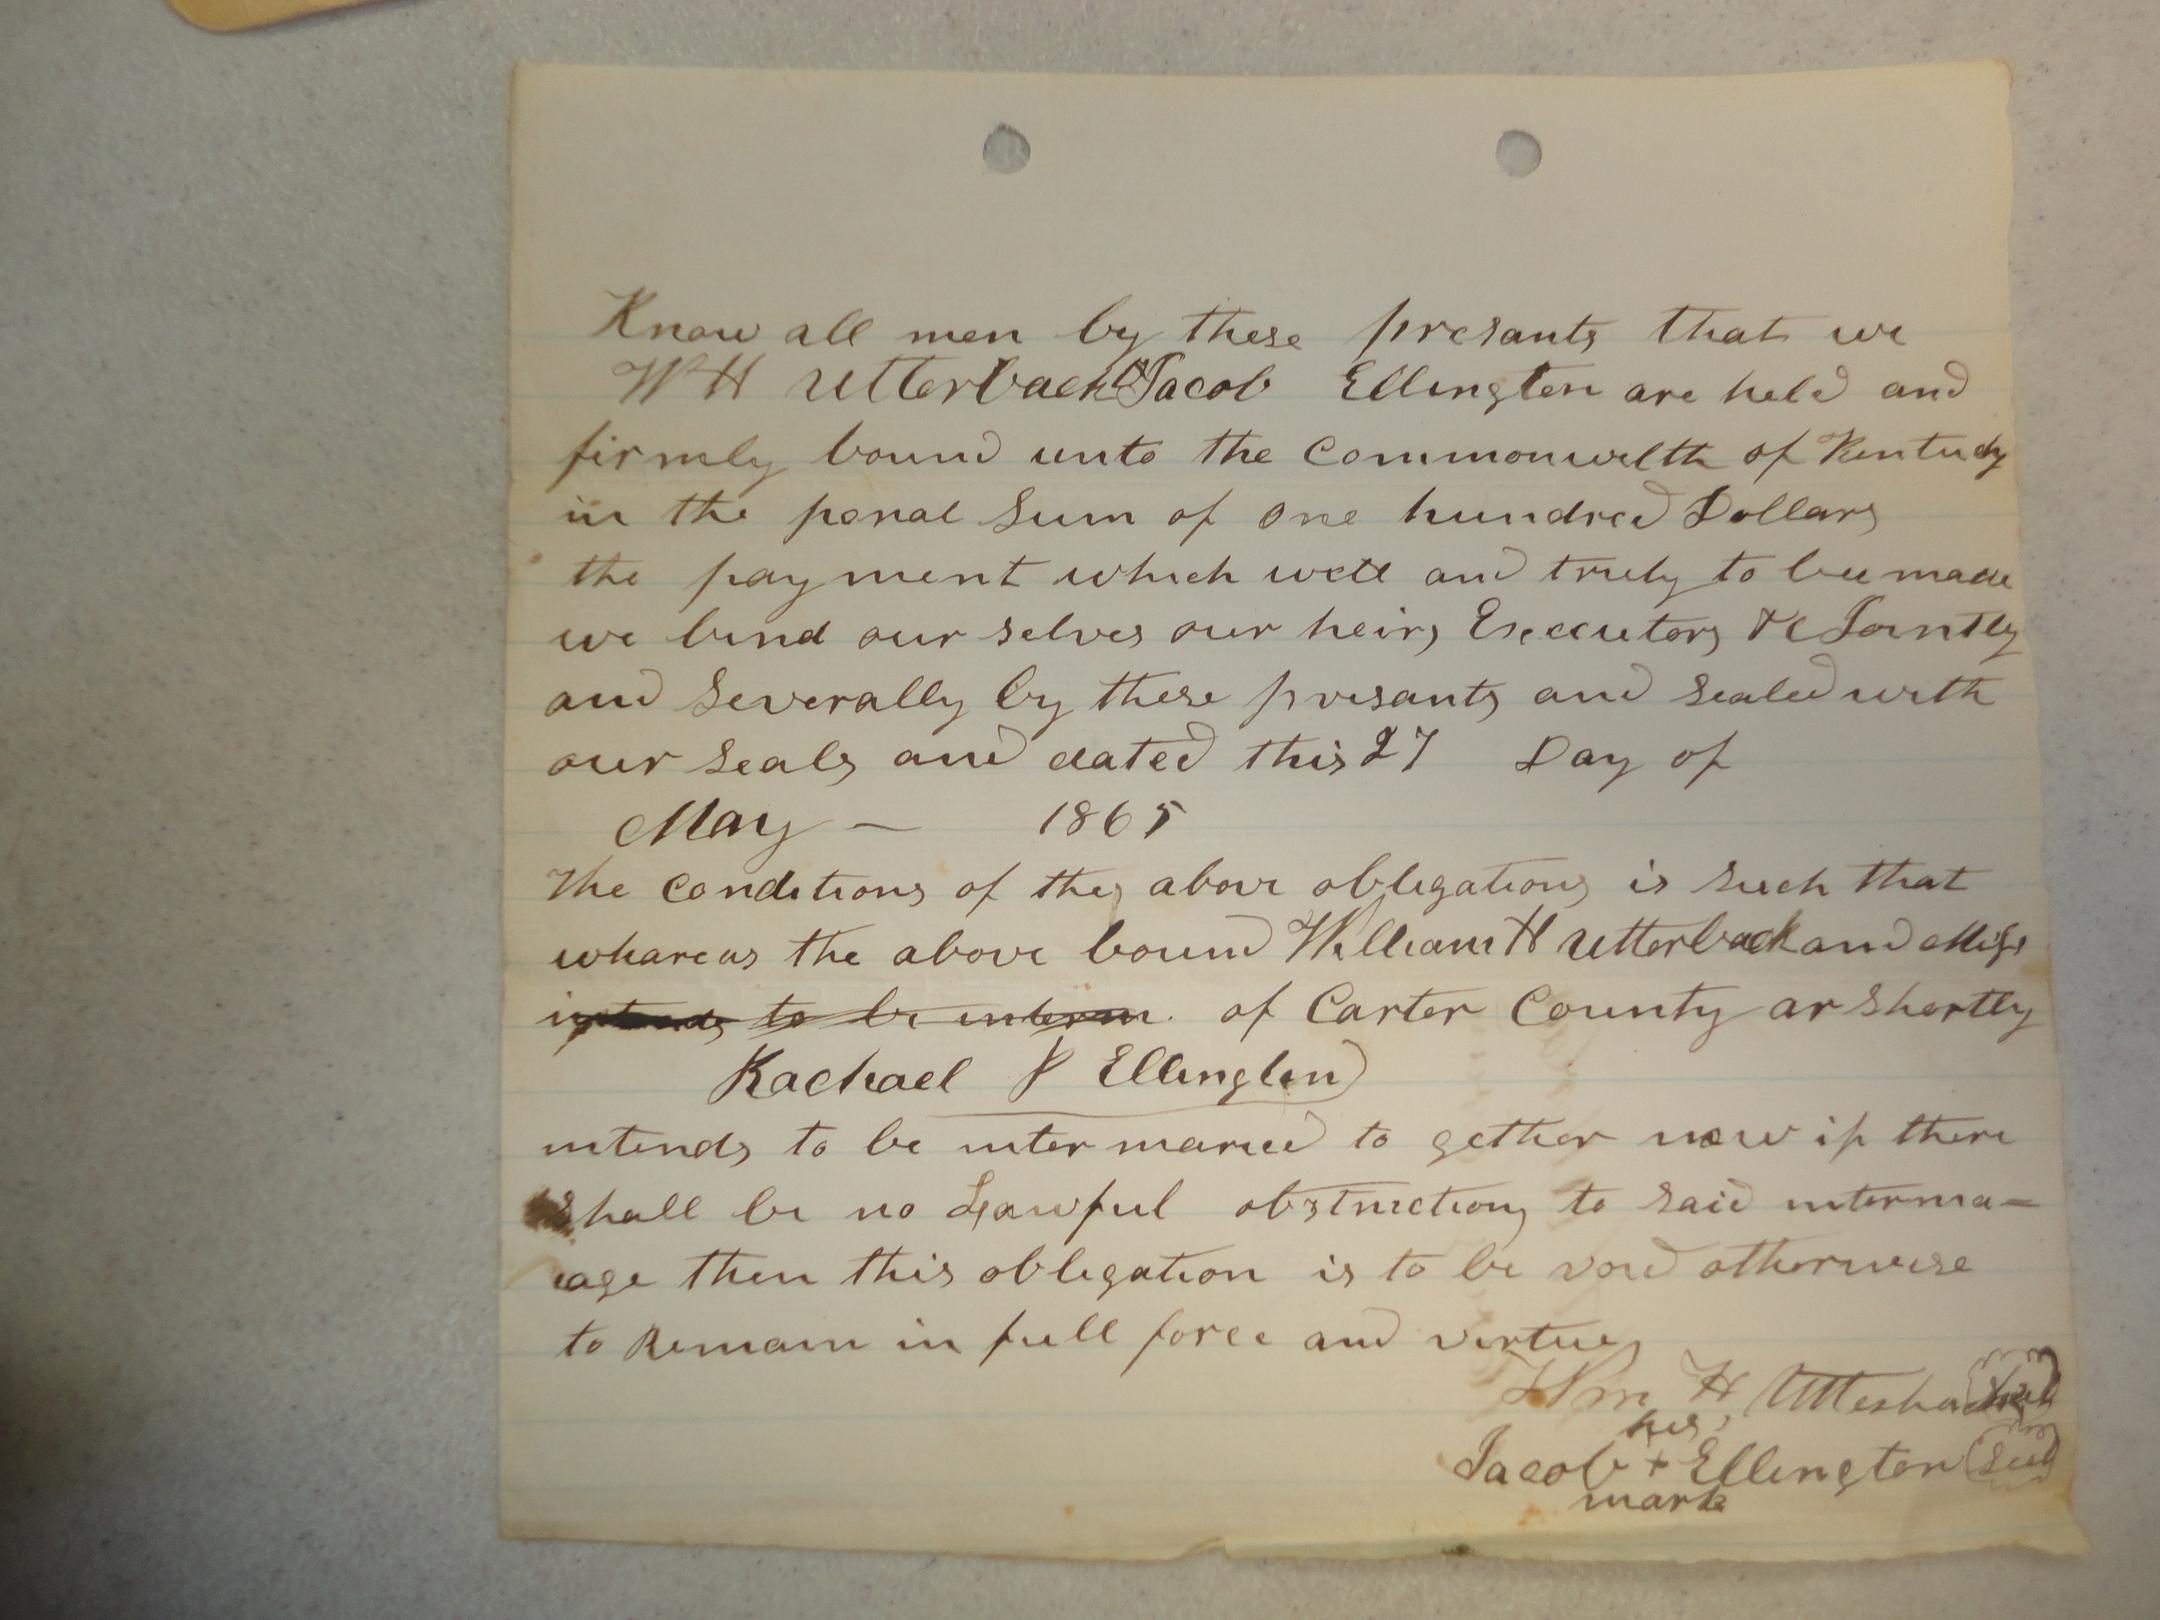 Know all men by these presants that we
W H Utterback & Jacob Ellington are held and
firmly bound unto the Commonwelth of Kentucky
in the penal Sum of one hundred Dollars
the payment which well and truly to bee made
we bind our selves our heirs Executors &c Jointly
and Severally by these presants and sealed with
our seals and dated this 27 Day of
May — 1865
The conditions of the above obligations is such that
whareas the above bound William H Utterback and Miss
intends to be interm. of Carter County ar Shortly
Rachael P Ellington
intends to be inter maried to gether now if there
Shall be no Lawful obstructions to said interma-
iage then this obligation is to be void otherwise
to Remain in full force and virtue
Wm H Utterback Seal
his
Jacob + Ellington Seal
mark